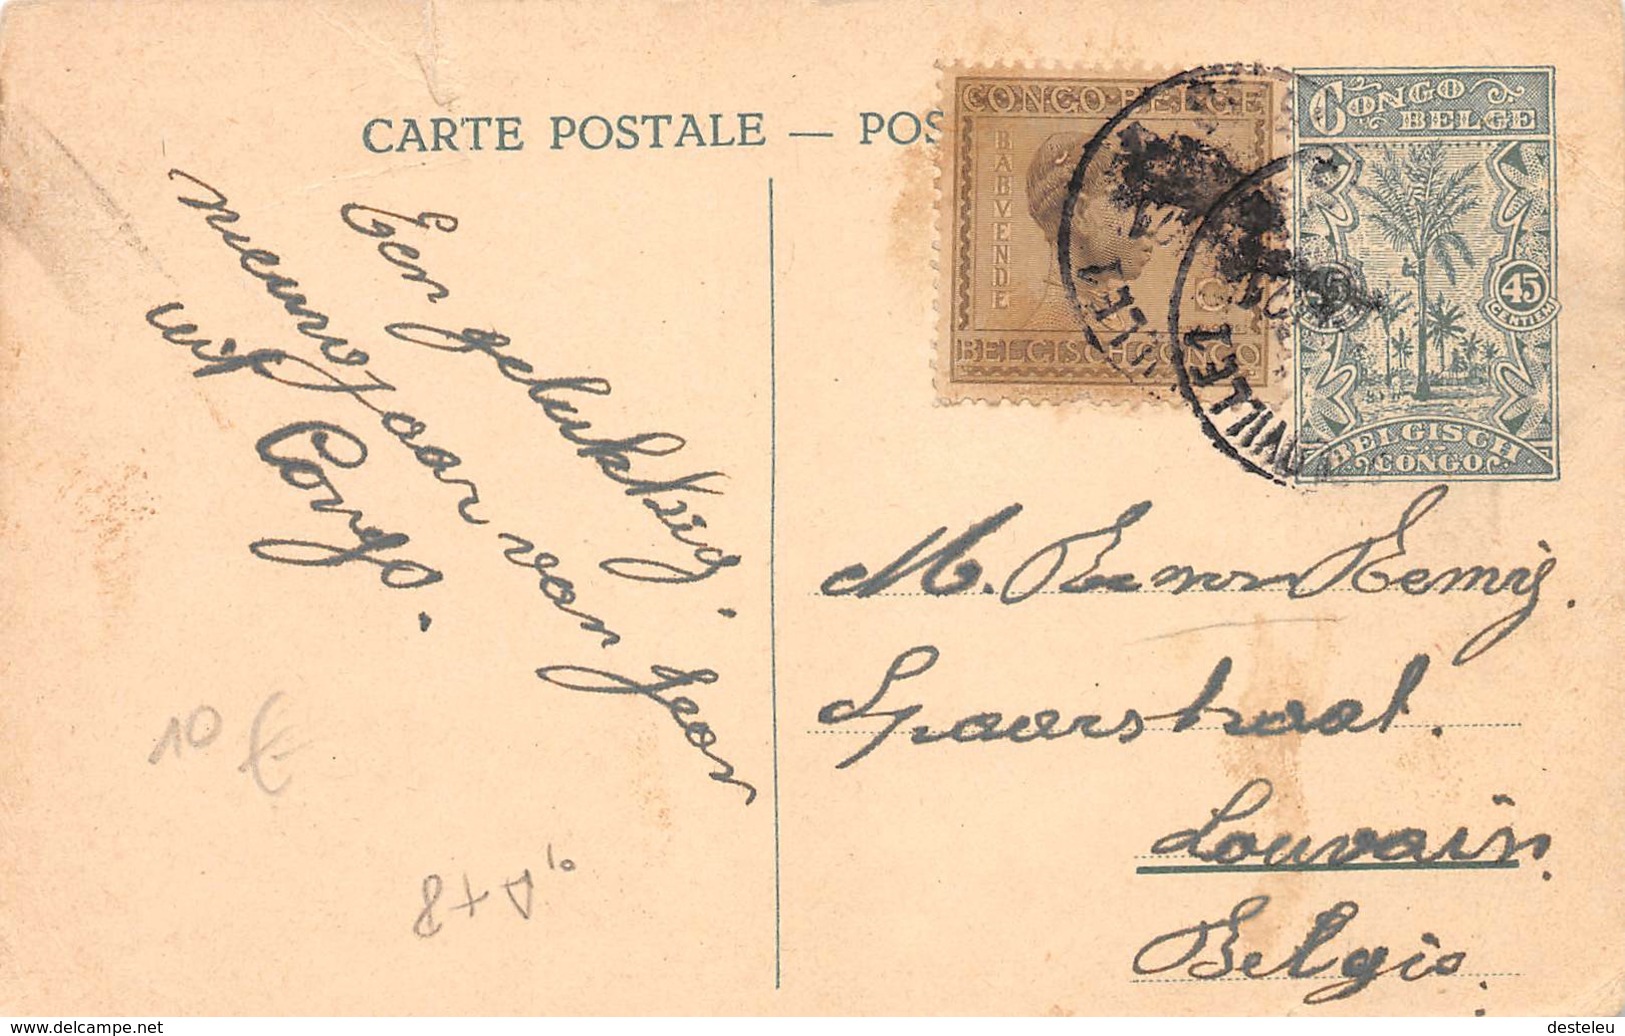 CARTE POSTALE — POS
CONGO BELGE
BABVENDE
BELGISCH CONGO
CONGO
BELGE
45
CENTIEM
BELGISCH
CONGO
VILLE 1
VILLE 1
Een gelukkig
nieuwjaar van Jean
uit Congo.
M. Remy.
Spoorstraat.
Louvain.
Belgie.
10 €
A+8
delcampe.net
desteleu